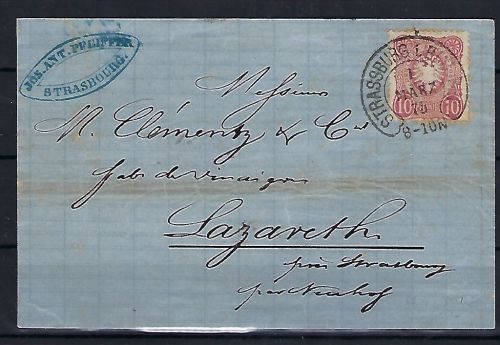 JOS. ANT. PFEIFFER
STRASBOURG.
STRASSBURG I. E.
MARZ
8-10N
10 10
Messieurs
N. Clémentz & Cie
fab. de vinaigres
Lazareth
près Strasbourg
par Neuhof